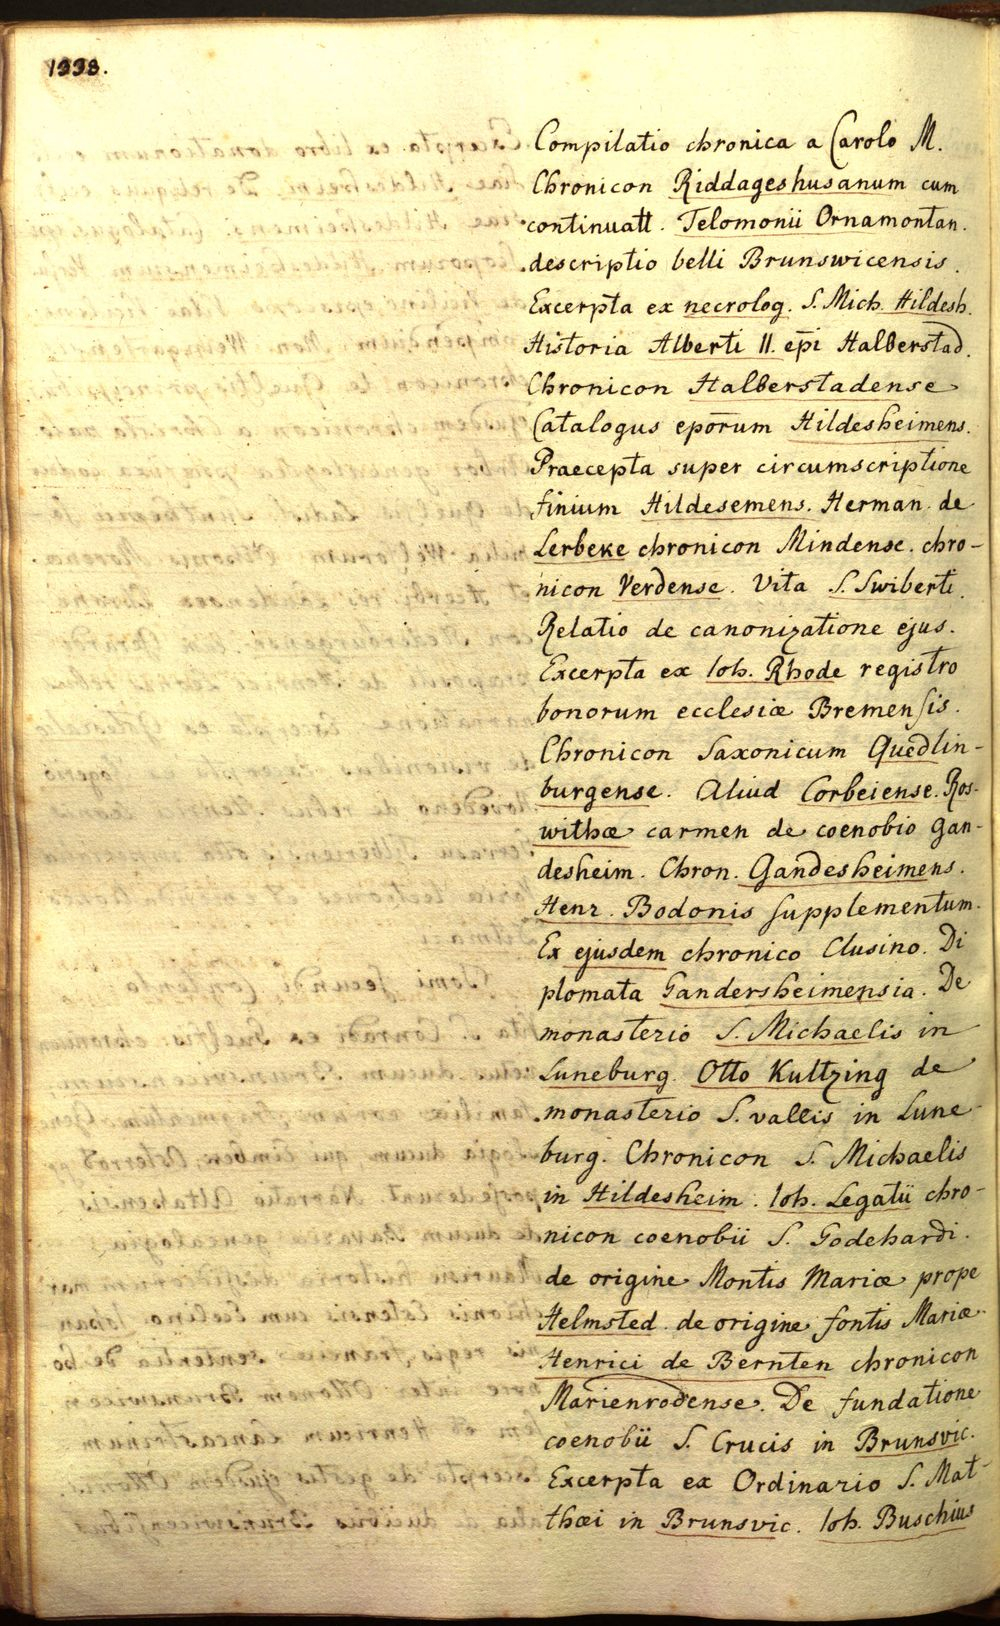 1338.
Compilatio chronica a Carolo M.
Chronicon Riddageshusanum cum
continuatt. Telomonii Ornamontan.
descriptio belli Brunswicensis.
Excerpta ex necrolog. S. Mich. Hildesh.
Historia Alberti II. ep̄i Halberstad.
Chronicon Halberstadense
Catalogus epōrum Hildesheimens.
Praecepta super circumscriptione
finium Hildesemens. Herman. de
Lerbeke chronicon Mindense. chro-
nicon Verdense. Vita S. Swiberti.
Relatio de canonizatione ejus.
Excerpta ex Ioh. Rhode registro
bonorum ecclesiæ Bremensis.
Chronicon Saxonicum Quedlin-
burgense. Aliud Corbeiense. Ros-
withæ carmen de coenobio Gan-
desheim. Chron. Gandesheimens.
Henr. Bodonis supplementum.
Ex ejusdem chronico Clusino. Di
plomata Gandersheimensia. De
monasterio S. Michaelis in
Luneburg. Otto Kultzing de
monasterio S. vallis in Lune-
burg. Chronicon S. Michaelis
in Hildesheim. Ioh. Legatii chro-
nicon coenobii S. Godehardi.
de origine Montis Mariæ prope
Helmsted. de origine fontis Mariæ
Henrici de Bernten chronicon
Marienrodense. De fundatione
coenobii S. Crucis in Brunsvic.
Excerpta ex Ordinario S. Mat-
thæi in Brunsvic. Ioh. Buschius